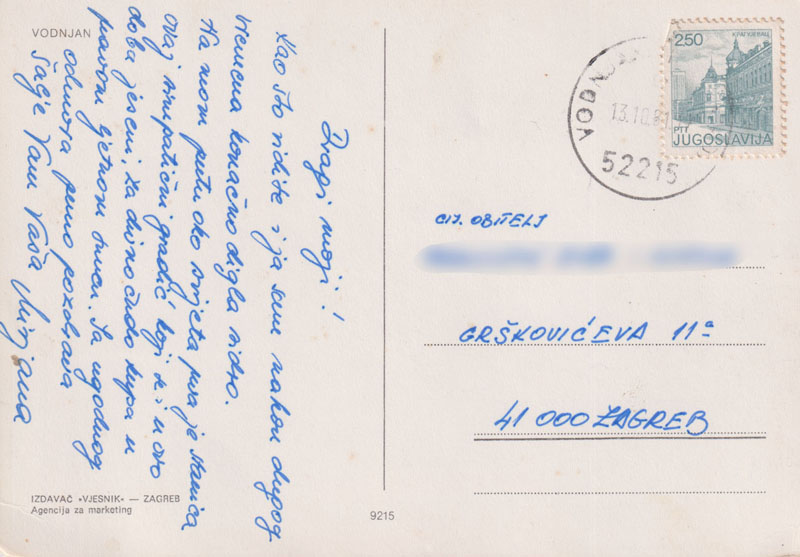 VODNJAN
Dragi moji!
Kao što vidite i ja sam nakon dugog
vremena konačno digla sidro.
Na mom putu oko svijeta prva je stanica
ovaj simpatični gradić koji se i u ovo
doba jeseni, za divno čudo kupa u
pravom ljetnom suncu. Sa ugodnog
odmora puno pozdrava
šalje Vam Vaša Mirjana
IZDAVAČ »VJESNIK« — ZAGREB
Agencija za marketing
9215
250
KRAGUJEVAC
PTT
JUGOSLAVIJA
13.10.
52215
CIJ. OBITELJ
GRŠKOVIĆEVA 11a
41 000 ZAGREB